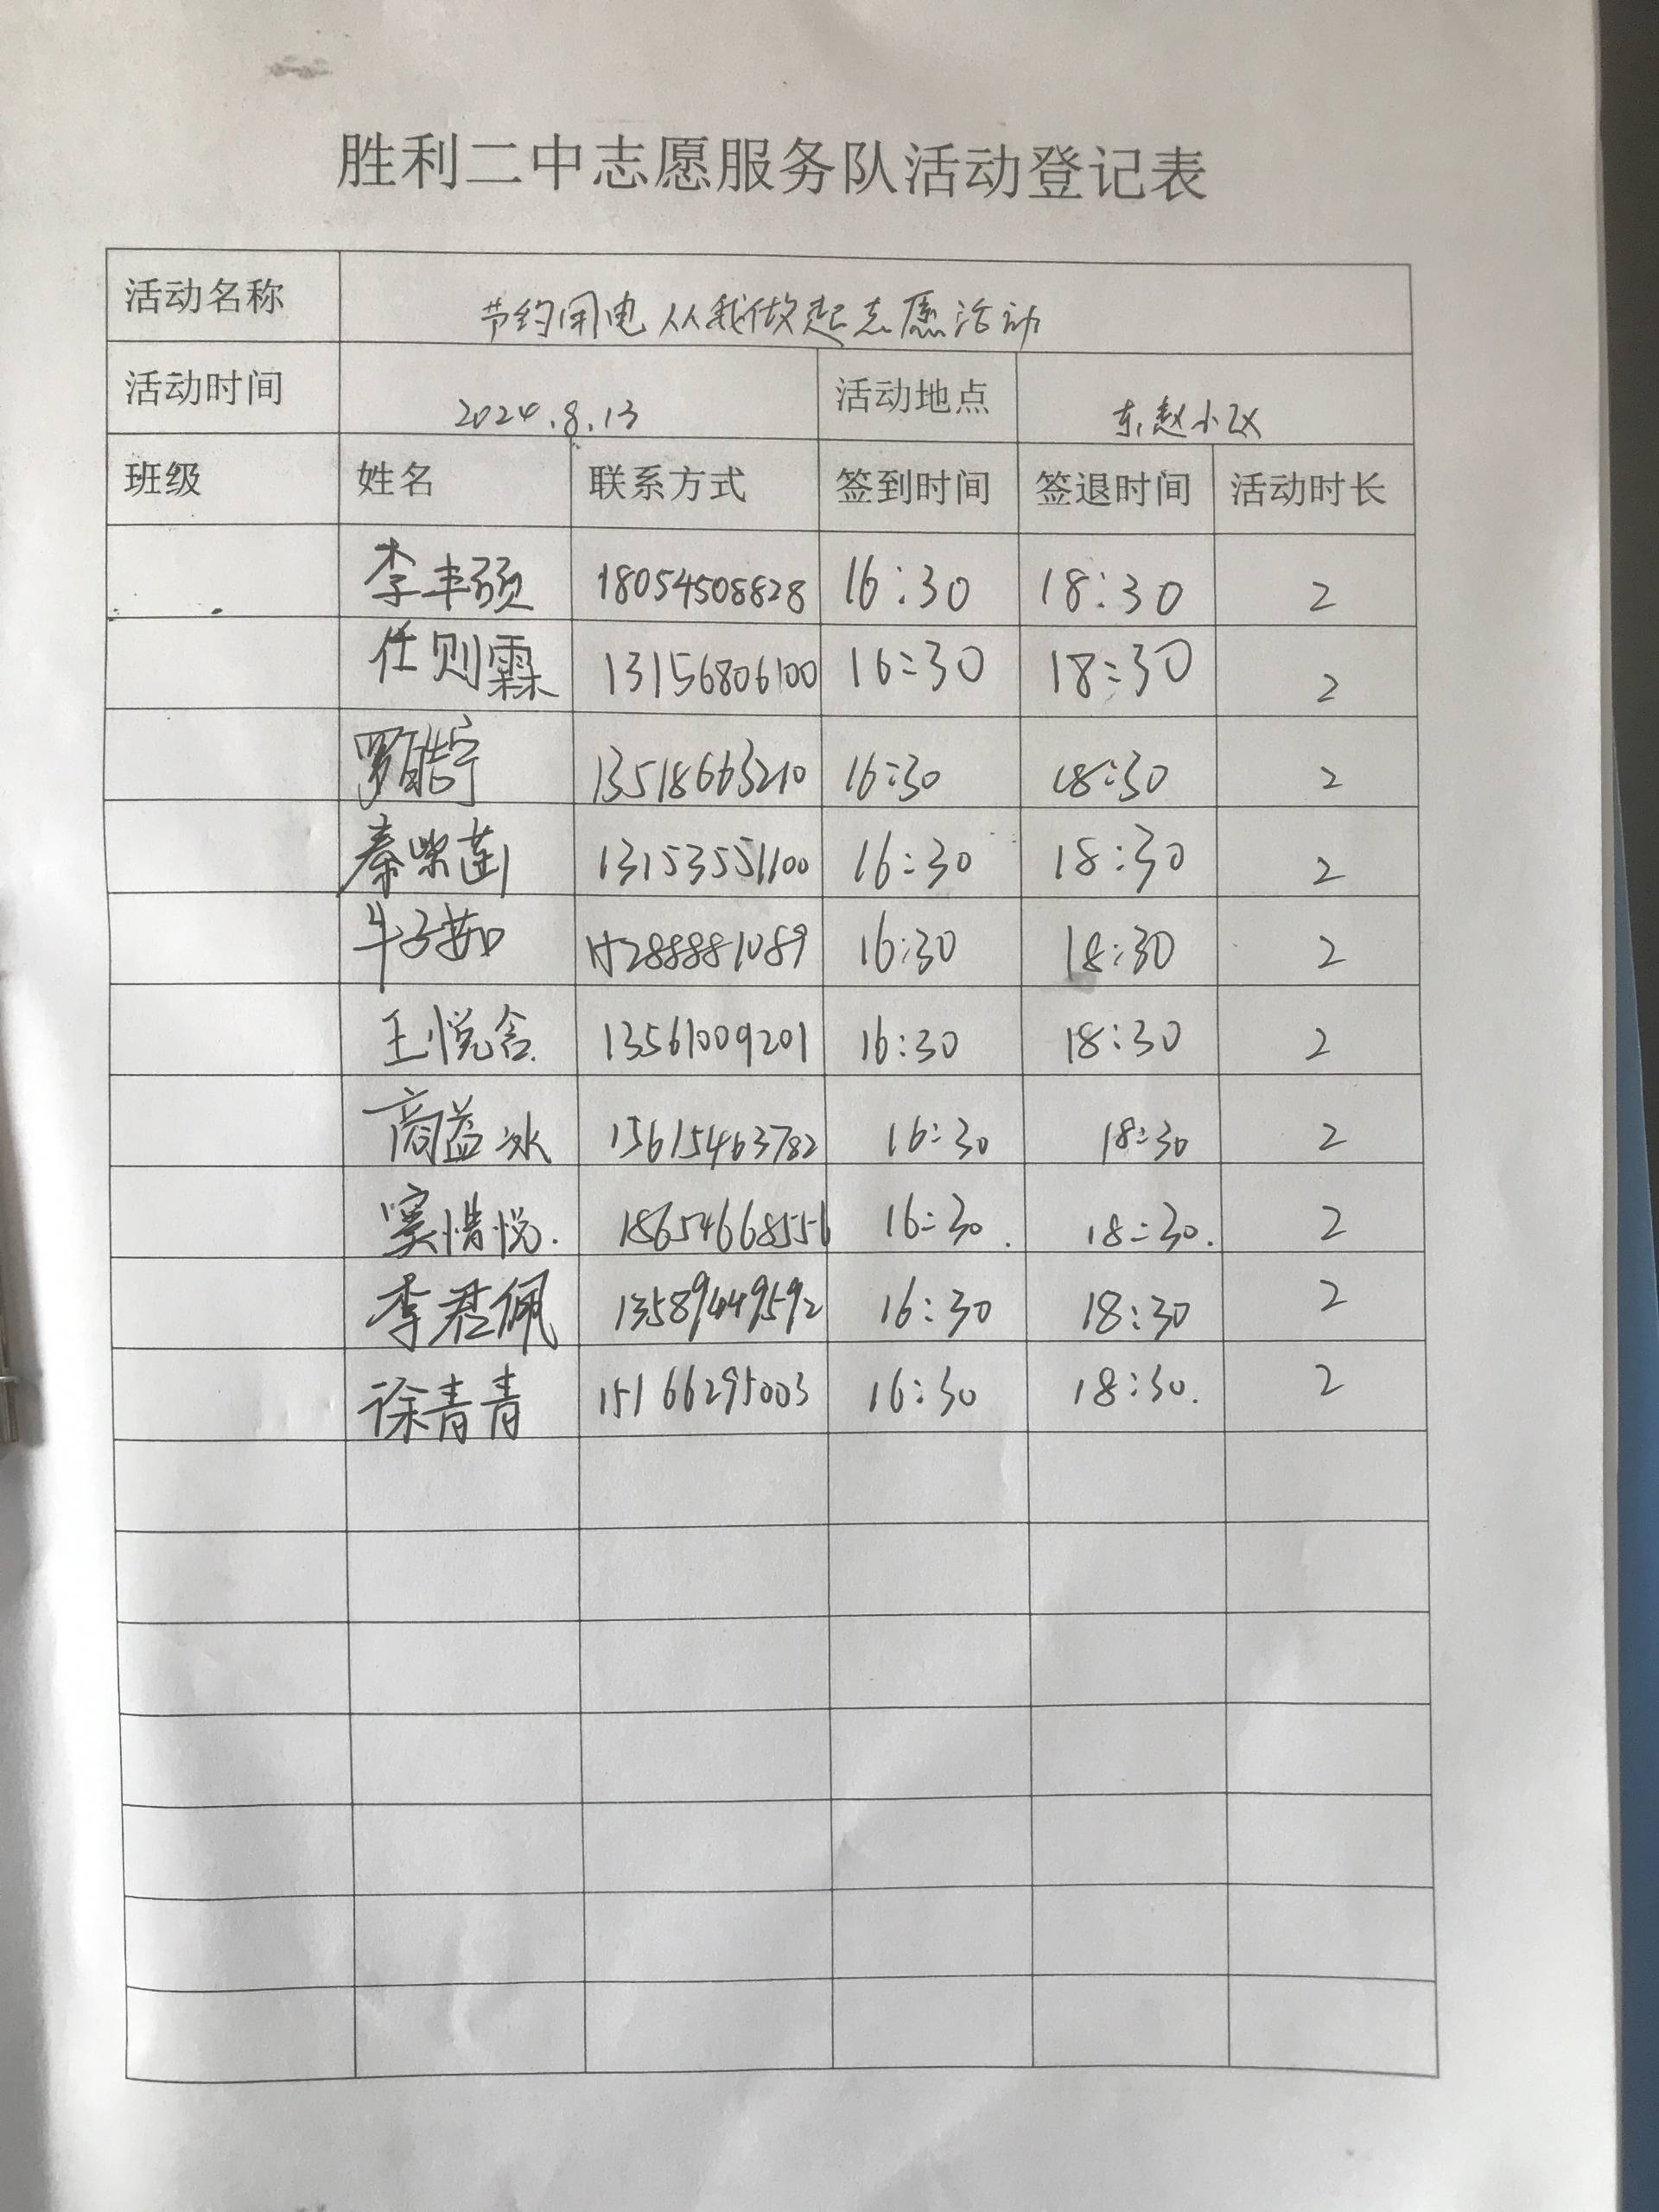 胜利二中志愿服务队活动登记表
活动名称 节约用电从我做起志愿活动
活动时间 2024.8.13 活动地点 东赵小区
班级 姓名 联系方式 签到时间 签退时间 活动时长
李丰硕 18054508828 16:30 18:30 2
任则霖 13156806100 16:30 18:30 2
罗皓宁 13518663210 16:30 18:30 2
秦 13153551100 16:30 18:30 2
牛子茹 16:30 18:30 2
王悦含 13561009201 16:30 18:30 2
商益冰 15615463782 16:30 18:30 2
窦惜悦. 18654668556 16:30. 18:30. 2
李君佩 13589449592 16:30 18:30 2
徐青青 15166295003 16:30 18:30. 2